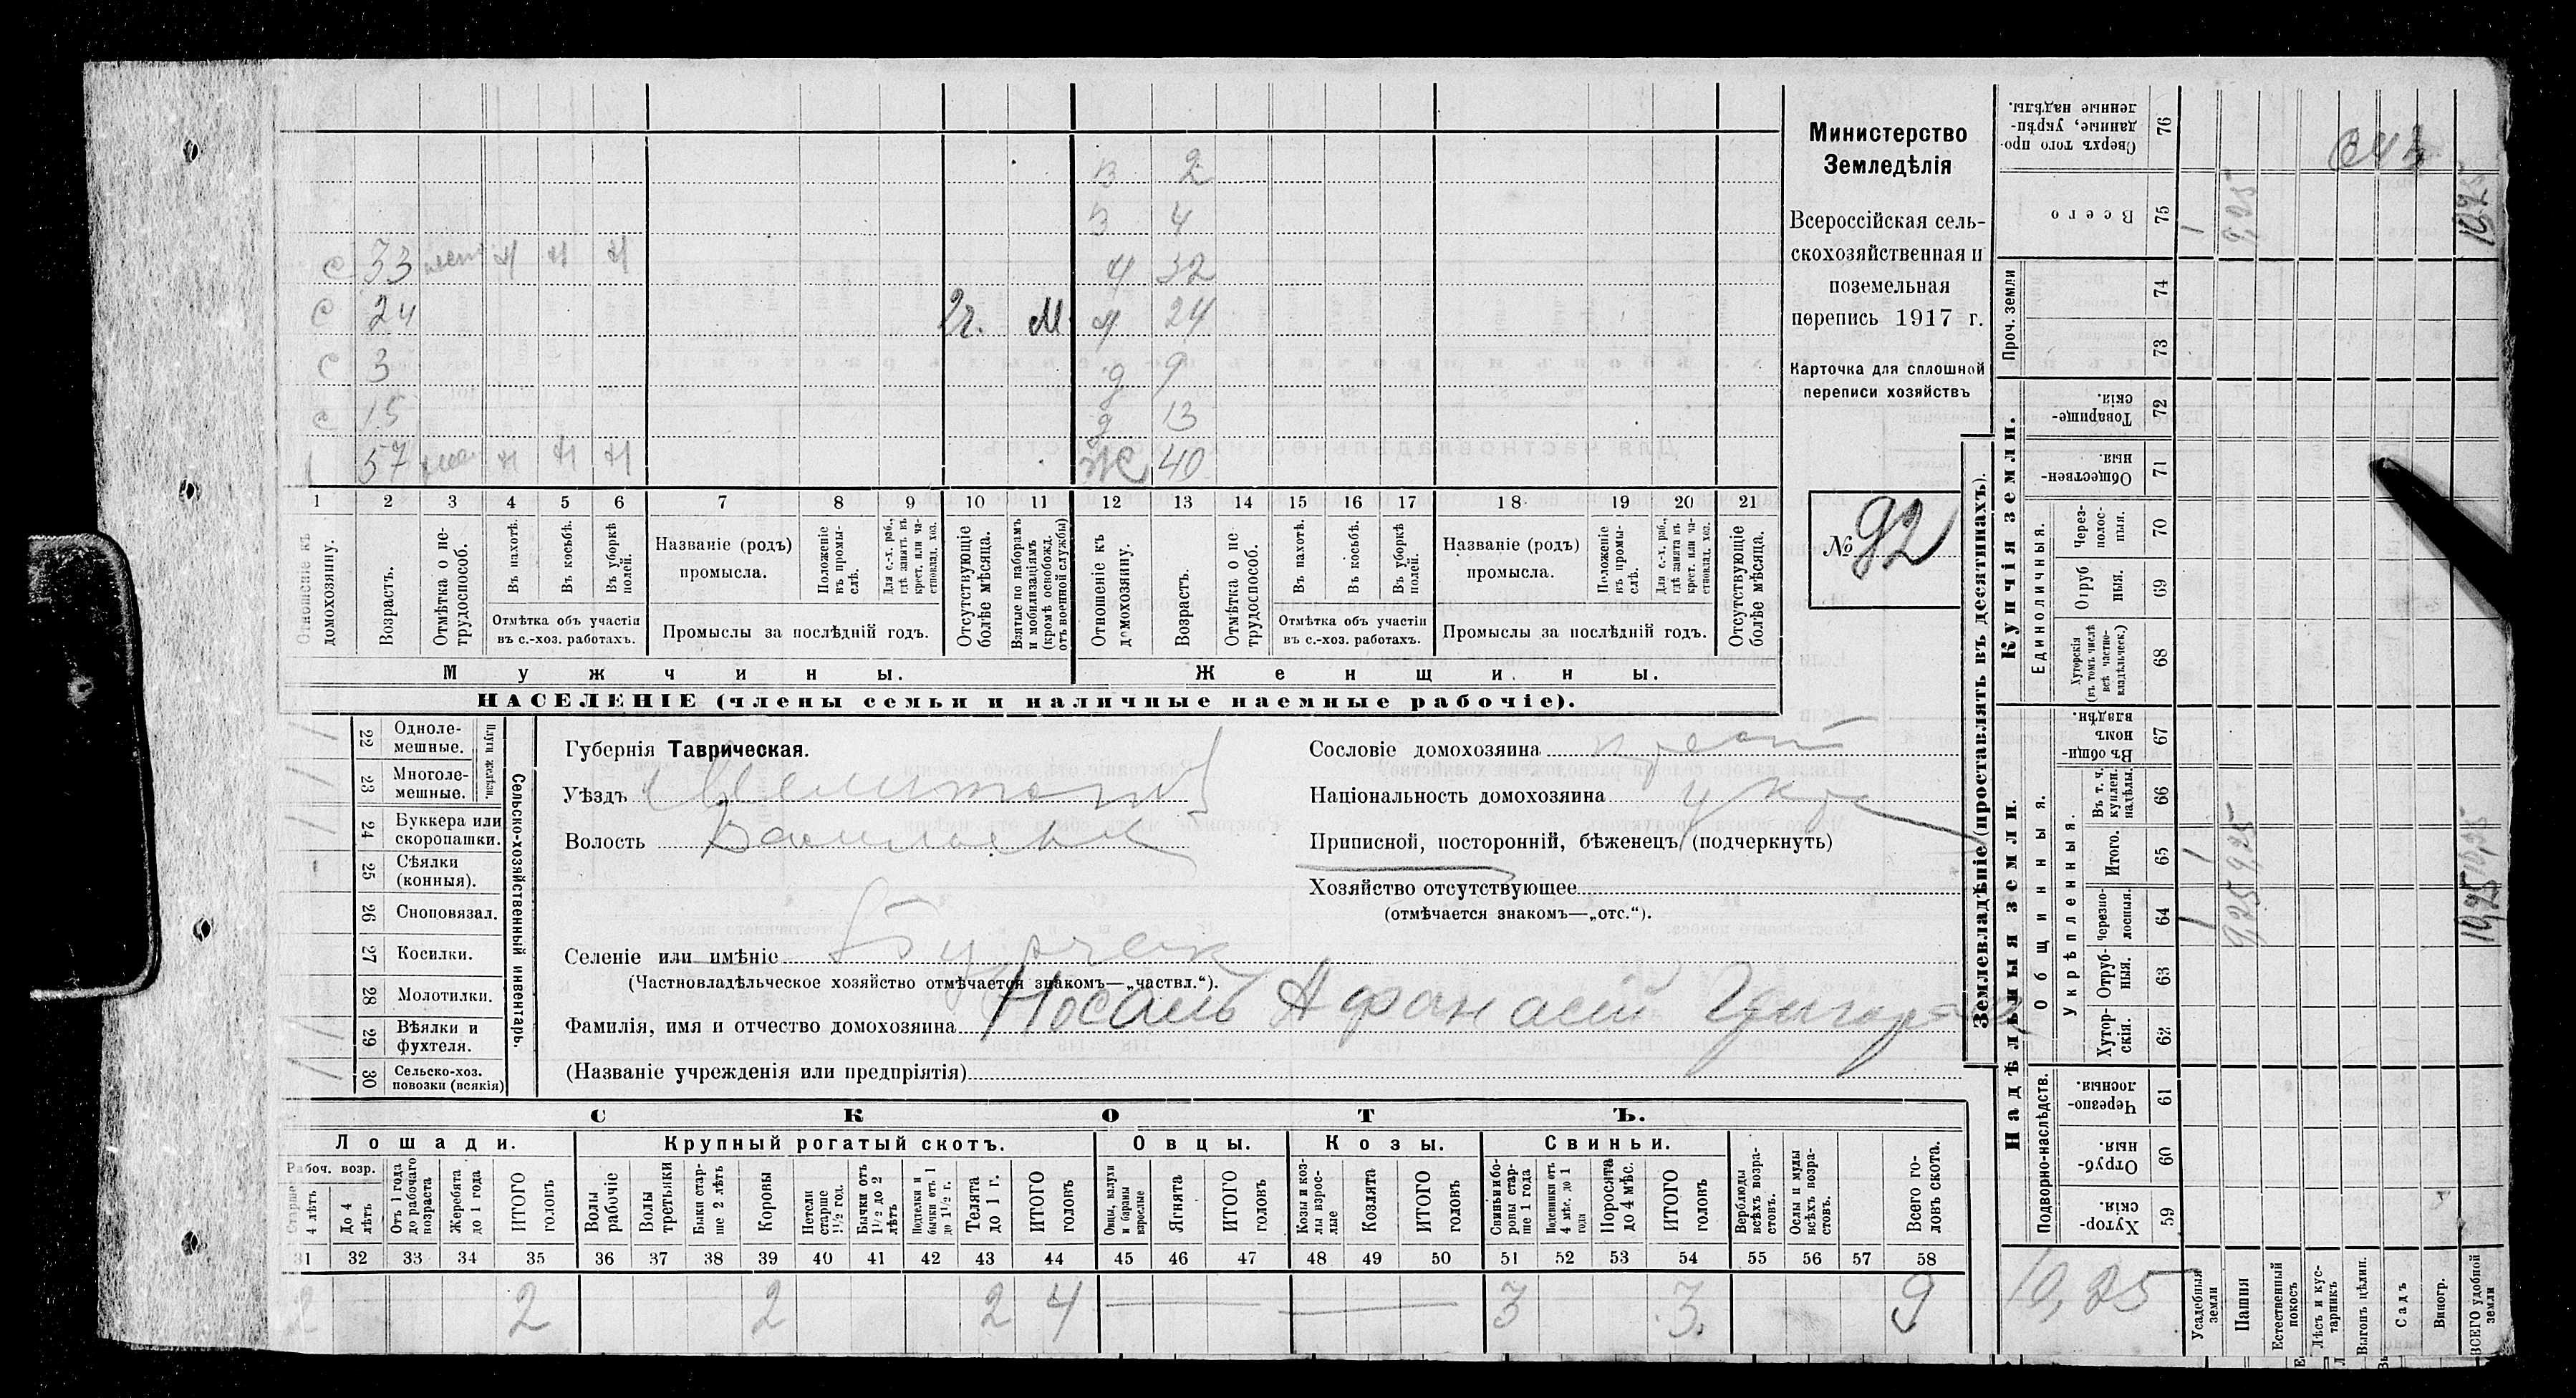 Министерство
Земледѣлія
Всероссійская сель-
скохозяйственная и
поземельная
перепись 1917 г.
Карточка для сплошной
переписи хозяйствъ
№ 92
В 2
В 4
С 33 Н Н Н Ч 32
С 24 2г. М Ч 24
С 3 Д 9
С 15 Д 13
1 57 Н Н Н Ж 40
1 2 3 4 5 6 7 8 9 10 11 12 13 14 15 16 17 18 19 20 21
Отношеніе къ домохозяину.
Возрастъ.
Отмѣтка о не-трудоспособ.
Въ пахотѣ.
Въ косьбѣ.
Въ уборкѣ полей.
Отмѣтка объ участіи
въ с.-хоз. работахъ.
Названіе (родъ)
промысла.
Положеніе въ промы-слѣ.
Для с.-х. раб., гдѣ занятъ въ крест. или ча-стновлад. хоз.
Промыслы за послѣдній годъ.
Отсутствующіе болѣе мѣсяца.
Взятые по наборамъ и мобилизаціямъ (кромѣ освобожд. отъ военной службы)
Отношеніе къ домохозяину.
Возрастъ.
Отмѣтка о не трудоспособ.
Въ пахотѣ.
Въ косьбѣ.
Въ уборкѣ полей.
Отмѣтка объ участіи
въ с.-хоз. работахъ.
Названіе (родъ)
промысла.
Положеніе въ промы-слѣ.
Для с.-х. раб., гдѣ занята въ крест. или ча-стновлад. хоз.
Промыслы за послѣдній годъ.
Отсутствующіе болѣе мѣсяца.
Мужчины.
Женщины.
НАСЕЛЕНІЕ (члены семьи и наличные наемные рабочіе).
22 Одноле-мешные.
23 Многоле-мешные.
Плуги желѣзн.
24 Буккера или скоропашки.
25 Сѣялки (конныя).
26 Сноповязал.
27 Косилки.
28 Молотилки.
29 Вѣялки и фухтеля.
30 Сельско-хоз. повозки (всякія)
Сельско-хозяйственный инвентарь.
Губернія Таврическая.
Уѣздъ Мелитоп
Волость Васильевк
Селеніе или имѣніе Бурчак
(Частновладѣльческое хозяйство отмѣчается знакомъ—„частвл.“).
Фамилія, имя и отчество домохозяина Носаль Афанасій Григор
(Названіе учрежденія или предпріятія)
Сословіе домохозяина крест
Національность домохозяина укр
Приписной, посторонній, бѣженецъ (подчеркнуть)
Хозяйство отсутствующее
(отмѣчается знакомъ—„отс.“).
СКОТЪ.
Лошади. Крупный рогатый скотъ. Овцы. Козы. Свиньи.
Рабоч. возр.
Старше 4 лѣтъ
До 4 лѣтъ
Отъ 1 года до рабочаго возраста
Жеребята до 1 года
ИТОГО головъ
Волы рабочіе
Волы третьяки
Быки стар-ше 2 лѣтъ
Коровы
Нетели старше 1 1/2 год.
Бычки отъ 1 1/2 до 2 лѣтъ
Подтелки и бычки отъ 1 до 1 1/2 г.
Телята до 1 г.
ИТОГО головъ
Овцы, валухи и бараны взрослые
Ягнята
ИТОГО головъ
Козы и коз-лы взрос-лые
Козлята
ИТОГО головъ
Свиньи и бо-ровы стар-ше 1 года
Подсвинки отъ 4 мѣс. до 1 года
Поросята до 4 мѣс.
ИТОГО головъ
Верблюды всѣхъ возра-стовъ.
Ослы и мулы всѣхъ возра-стовъ.
Всего го-ловъ скота.
31 32 33 34 35 36 37 38 39 40 41 42 43 44 45 46 47 48 49 50 51 52 53 54 55 56 57 58
2 2 2 2 4 3 3. 9
Землевладѣніе (проставлять въ десятинахъ).
Надѣльныя земли. Купчія земли. Проч. земли
Подворно-наслѣдств.
Общинныя.
Укрѣпленныя.
Единоличныя.
Хутор-скія. 59
Отруб-ныя. 60
Черезпо-лосныя. 61
Хутор-скія. 62
Отруб-ныя. 63
Черезпо-лосныя. 64
Итого. 65
Въ т. ч. куплен. надѣлы. 66
Въ общи-номъ владѣн. 67
Хуторскія (въ томъ числѣ всѣ частно-владѣльческ.) 68
Отруб ныя. 69
Через-полос-ныя. 70
Обществен-ныя. 71
Товарище-скія. 72
73
74
Всего 75
Сверхъ того про-данные, укрѣп-ленные надѣлы. 76
10,25
Усадебныя земли 1 1 1
Пашня 9,25 9,25 9,25
Естественный покосъ
Лѣсъ и кус-тарникъ
Выгонъ цѣлин.
Садъ
Виногр.
ВСЕГО удобной земли 10,25 10,25 10,25